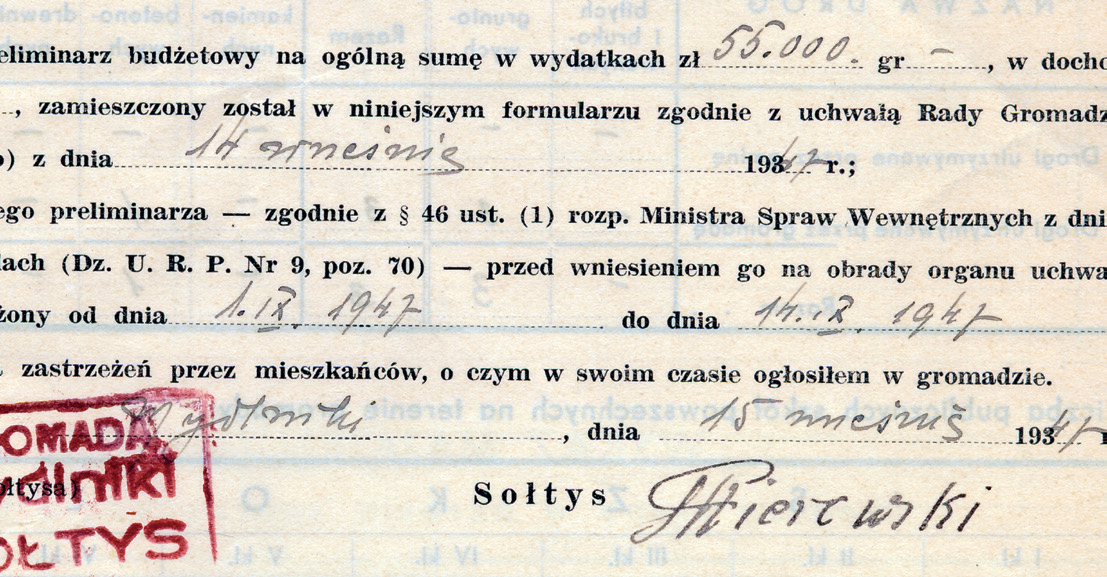 eliminarz budżetowy na ogólną sumę w wydatkach zł 55.000. gr —, w docho
, zamieszczony został w niniejszym formularzu zgodnie z uchwałą Rady Gromadz
) z dnia 14 września 1947 r.;
ego preliminarza — zgodnie z § 46 ust. (1) rozp. Ministra Spraw Wewnętrznych z dni
lach (Dz. U. R. P. Nr 9, poz. 70) — przed wniesieniem go na obrady organu uchwa
żony od dnia 1.IX. 1947 do dnia 14.IX. 1947
zastrzeżeń przez mieszkańców, o czym w swoim czasie ogłosiłem w gromadzie.
, dnia 15 września 1947 r
OMADA
dlniki
ołtysa)
Sołtys
OŁTYS